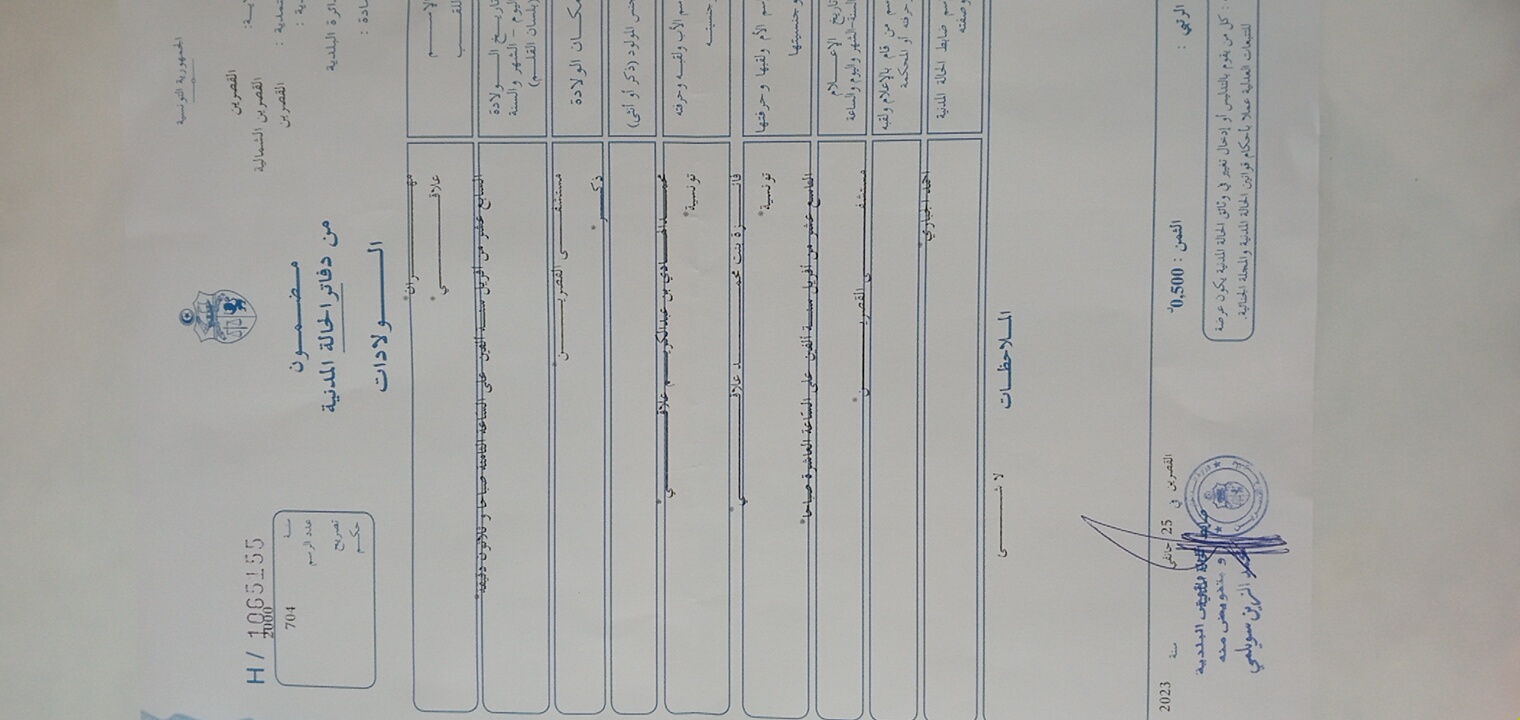 الجمهورية التونسية
القصرين
القصرين الشمالية
القصرين
مضمون
من دفاتر الحالة المدنية
الولادات
H / 1065155
سنة 2000
عدد الرسم 704
تصريح
حكم
الاسم
اللقب
مهران*
علاقي*
تاريخ الولادة
اليوم - الشهر والسنة
(بلسان القلم)
السابع عشر من أفريل سنة ألفين على الساعة الثامنة صباحا و ثلاثون دقيقة*
مكان الولادة
مستشفى القصرين*
جنس المولود (ذكر أو أنثى)
ذكر*
اسم الأب ولقبه وحرفته
وجنسيته
محمد الهادي بن عبد الكريم علاقي*
تونسية*
اسم الأم ولقبها وحرفتها
وجنسيتها
فائزة بنت محمد علاقي*
تونسية*
تاريخ الإعلام
السنة-الشهر واليوم والساعة
التاسع عشر من أفريل سنة ألفين على الساعة العاشرة صباحا*
اسم من قام بالإعلام ولقبه
وحرفته أو المحكمة
مستشفى القصرين*
اسم ضابط الحالة المدنية
وصفته
أحمد الجباري*
الملاحظات
لا شيء
القصرين في 25 جانفي سنة 2023
ضابط الحالة المدنية
و بتفويض منه
محمد الزين سويلمي
الثمن : 0,500د
كل من يقوم بالتدليس أو إدخال تغيير في وثائق الحالة المدنية يكون عرضة
للتتبعات العدلية عملا بأحكام قوانين الحالة المدنية والمجلة الجنائية.